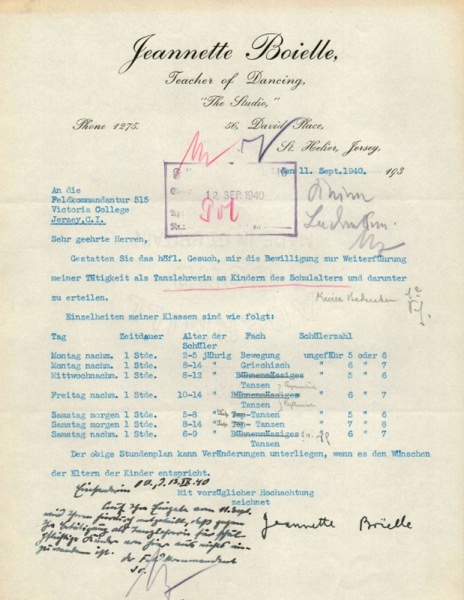 Jeannette Boielle,
Teacher of Dancing,
"The Studio,"
Phone 1275.
56, David Place,
St. Helier, Jersey,
den 11. Sept.1940. 193
12 SEP. 1940
An die
Feldkommandantur 515
Victoria College
Jersey,C.I.
Sehr geehrte Herren,
Gestatten Sie das höfl. Gesuch, mir die Bewilligung zur Weiterführung
meiner Tätigkeit als Tanzlehrerin an Kindern des Schulalters und darunter
zu erteilen.
Keine Bedenken
Einzelheiten meiner Klassen sind wie folgt:
Tag Zeitdauer Alter der Fach Schülerzahl
Schüler
Montag nachm. 1 Stde. 2-5 jährig Bewegung ungefähr 5 oder 6
Montag nachm. 1 Stde. 8-14 " Griechisch " 6 " 7
Mittwochnachm. 1 Stde. 8-12 " Bühnenmässiges " 5 " 6
Tanzen
Freitag nachm. 1 Stde. 10-14 " Bühnenmässiges " 6 " 7
Tanzen
Samstag morgen 1 Stde. 5-8 " Tap-Tanzen " 5 " 6
Samstag nachm. 1 Stde. 8-14 " Tap-Tanzen " 7 " 8
Samstag nachm. 1 Stde. 6-9 " Bühnenmässiges " 6 " 7
Tanzen
Der obige Stundenplan kann Veränderungen unterliegen, wenn es den Wünschen
der Eltern der Kinder entspricht.
Mit vorzüglicher Hochachtung
zeichnet
Jeannette Boielle